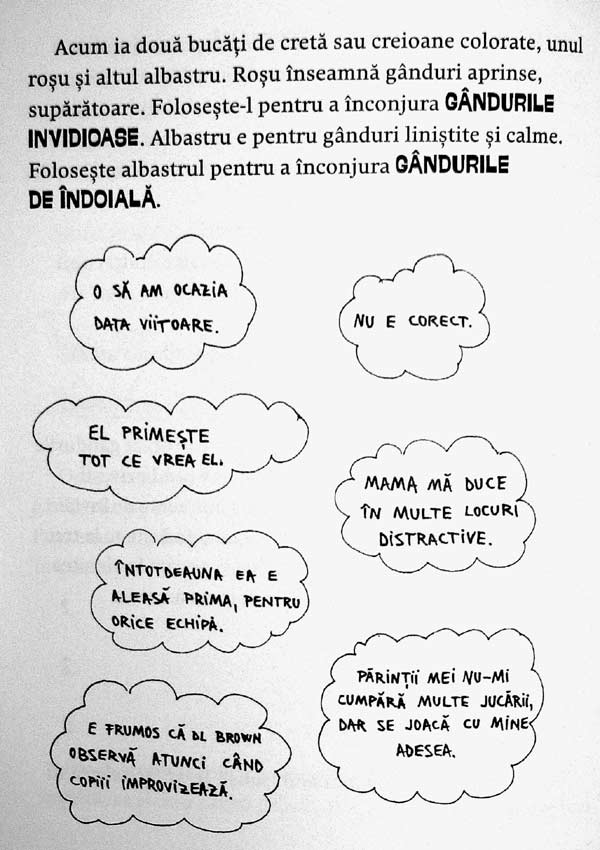 Acum ia două bucăți de cretă sau creioane colorate, unul
roșu și altul albastru. Roșu înseamnă gânduri aprinse,
supărătoare. Folosește-l pentru a înconjura GÂNDURILE
INVIDIOASE. Albastru e pentru gânduri liniștite și calme.
Folosește albastrul pentru a înconjura GÂNDURILE
DE ÎNDOIALĂ.
O SĂ AM OCAZIA
DATA VIITOARE.
NU E CORECT.
EL PRIMEȘTE
TOT CE VREA EL.
MAMA MĂ DUCE
ÎN MULTE LOCURI
DISTRACTIVE.
ÎNTOTDEAUNA EA E
ALEASĂ PRIMA, PENTRU
ORICE ECHIPĂ.
PĂRINȚII MEI NU-MI
CUMPĂRĂ MULTE JUCĂRII,
DAR SE JOACĂ CU MINE
ADESEA.
E FRUMOS CĂ DL BROWN
OBSERVĂ ATUNCI CÂND
COPIII IMPROVIZEAZĂ.